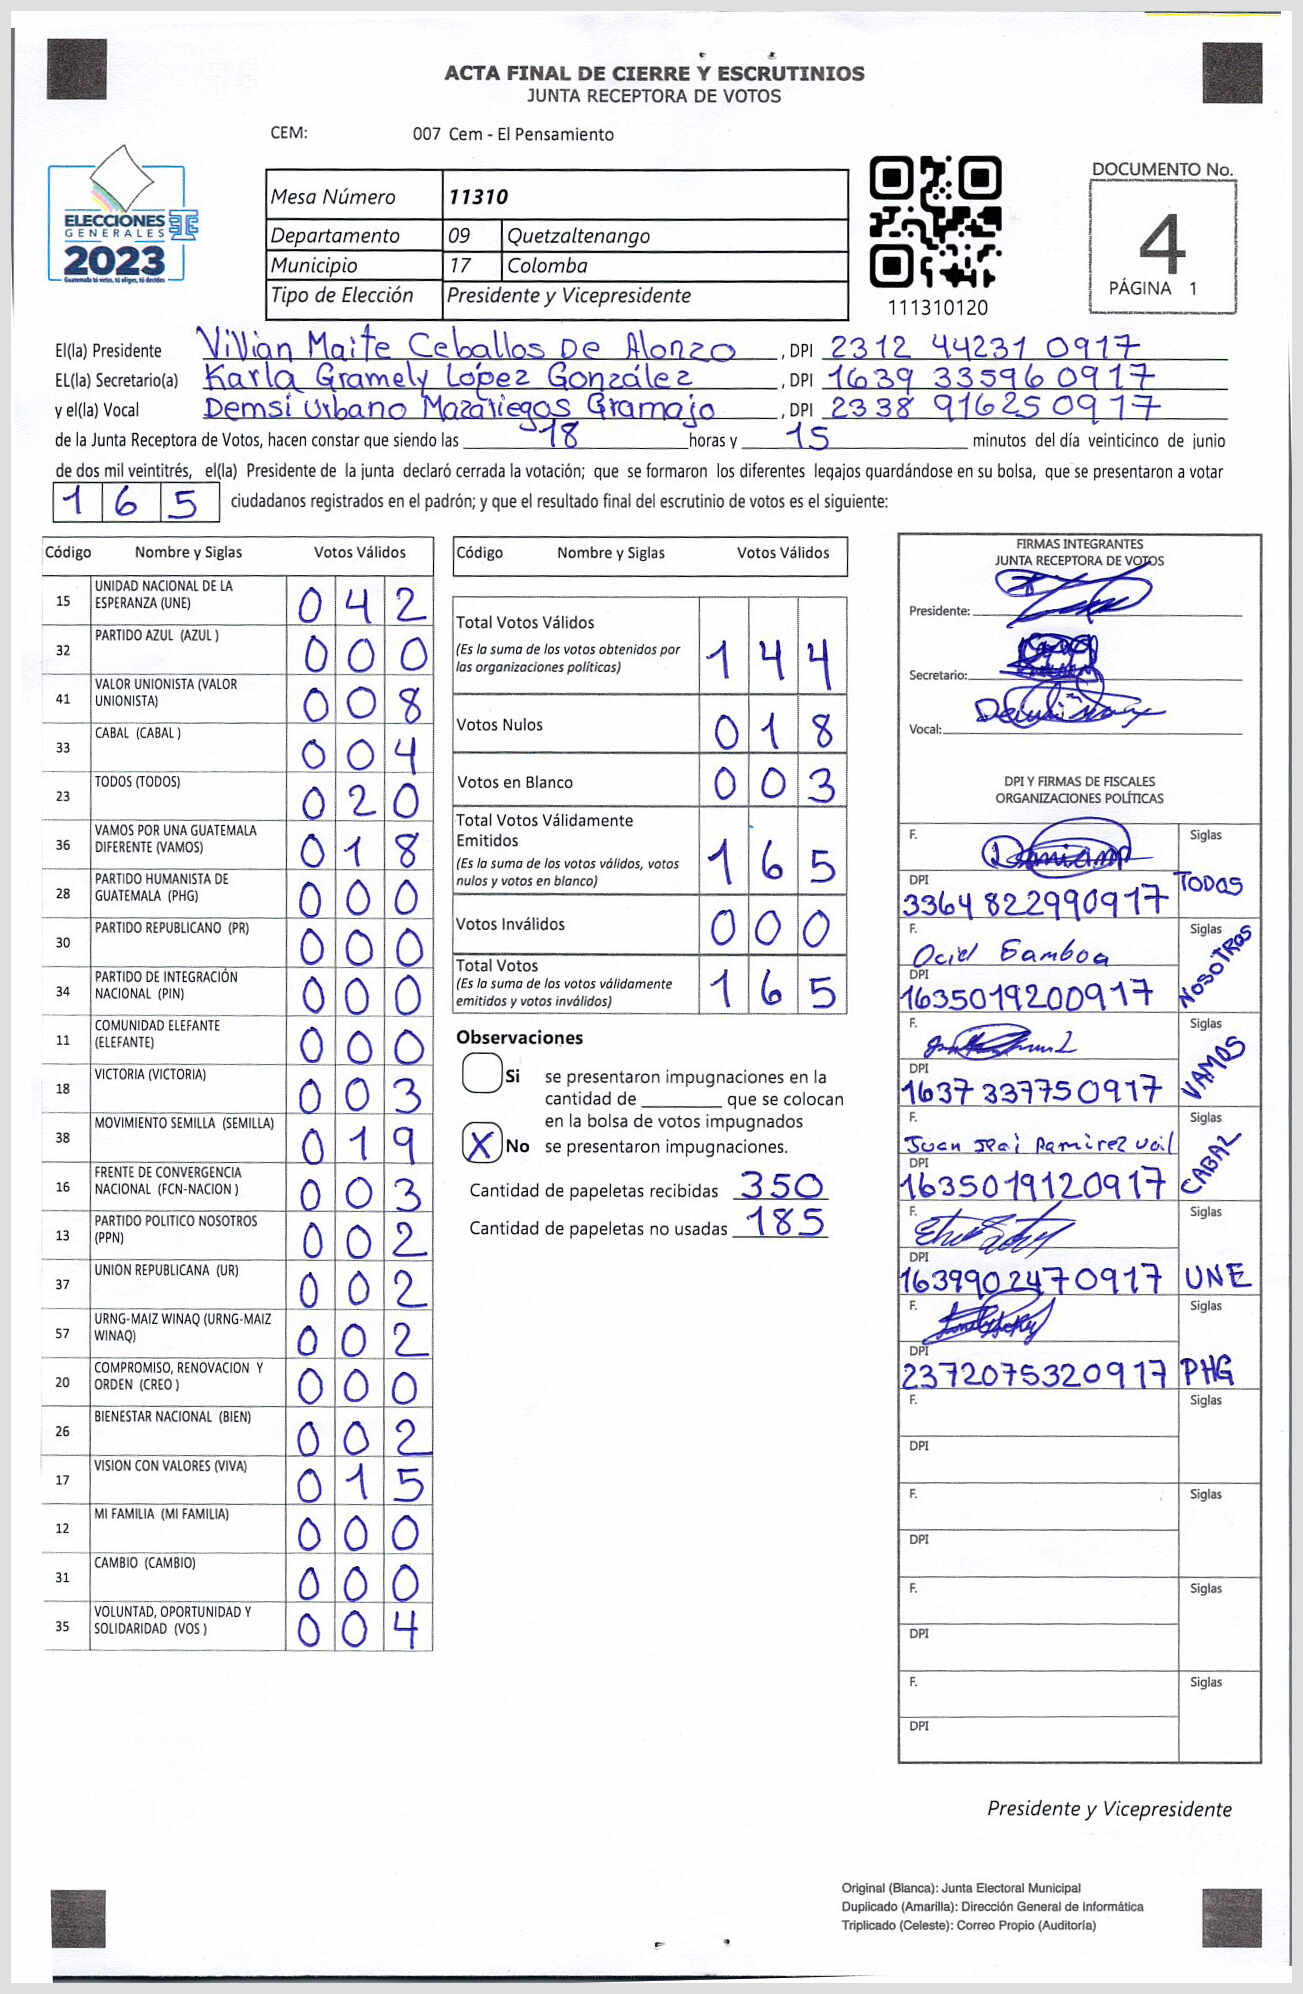 ACTA FINAL DE CIERRE Y ESCRUTINIOS
JUNTA RECEPTORA DE VOTOS
CEM: 007 Cem - El Pensamiento
ELECCIONES
GENERALES
2023
Guatemala tú votas, tú eliges, tú decides
Mesa Número 11310
Departamento 09 Quetzaltenango
Municipio 17 Colomba
Tipo de Elección Presidente y Vicepresidente
111310120
DOCUMENTO No.
4
PÁGINA 1
El(la) Presidente Vivian Maite Ceballos De Alonzo, DPI 2312 44231 0917
EL(la) Secretario(a) Karla Gramely López González, DPI 1639 33596 0917
y el(la) Vocal Demsi Urbano Mazariegos Gramajo, DPI 2338 91625 0917
de la Junta Receptora de Votos, hacen constar que siendo las 18 horas y 15 minutos del día veinticinco de junio
de dos mil veintitrés, el(la) Presidente de la junta declaró cerrada la votación; que se formaron los diferentes legajos guardándose en su bolsa, que se presentaron a votar
1 6 5 ciudadanos registrados en el padrón; y que el resultado final del escrutinio de votos es el siguiente:
Código Nombre y Siglas Votos Válidos
15 UNIDAD NACIONAL DE LA ESPERANZA (UNE) 0 4 2
32 PARTIDO AZUL (AZUL ) 0 0 0
41 VALOR UNIONISTA (VALOR UNIONISTA) 0 0 8
33 CABAL (CABAL ) 0 0 4
23 TODOS (TODOS) 0 2 0
36 VAMOS POR UNA GUATEMALA DIFERENTE (VAMOS) 0 1 8
28 PARTIDO HUMANISTA DE GUATEMALA (PHG) 0 0 0
30 PARTIDO REPUBLICANO (PR) 0 0 0
34 PARTIDO DE INTEGRACIÓN NACIONAL (PIN) 0 0 0
11 COMUNIDAD ELEFANTE (ELEFANTE) 0 0 0
18 VICTORIA (VICTORIA) 0 0 3
38 MOVIMIENTO SEMILLA (SEMILLA) 0 1 9
16 FRENTE DE CONVERGENCIA NACIONAL (FCN-NACION ) 0 0 3
13 PARTIDO POLITICO NOSOTROS (PPN) 0 0 2
37 UNION REPUBLICANA (UR) 0 0 2
57 URNG-MAIZ WINAQ (URNG-MAIZ WINAQ) 0 0 2
20 COMPROMISO, RENOVACION Y ORDEN (CREO ) 0 0 0
26 BIENESTAR NACIONAL (BIEN) 0 0 2
17 VISION CON VALORES (VIVA) 0 1 5
12 MI FAMILIA (MI FAMILIA) 0 0 0
31 CAMBIO (CAMBIO) 0 0 0
35 VOLUNTAD, OPORTUNIDAD Y SOLIDARIDAD (VOS ) 0 0 4
Código Nombre y Siglas Votos Válidos
Total Votos Válidos
(Es la suma de los votos obtenidos por
las organizaciones políticas) 1 4 4
Votos Nulos 0 1 8
Votos en Blanco 0 0 3
Total Votos Válidamente
Emitidos
(Es la suma de los votos válidos, votos
nulos y votos en blanco) 1 6 5
Votos Inválidos 0 0 0
Total Votos
(Es la suma de los votos válidamente
emitidos y votos inválidos) 1 6 5
Observaciones
Si se presentaron impugnaciones en la
cantidad de ________ que se colocan
en la bolsa de votos impugnados
X No se presentaron impugnaciones.
Cantidad de papeletas recibidas 350
Cantidad de papeletas no usadas 185
FIRMAS INTEGRANTES
JUNTA RECEPTORA DE VOTOS
Presidente:
Secretario:
Vocal:
DPI Y FIRMAS DE FISCALES
ORGANIZACIONES POLÍTICAS
F. Siglas
DPI
3364 822990917 TODOS
F. Ociel Gamboa Siglas
DPI
1635019200917 NOSOTROS
F. Siglas
DPI
1637 337750917 VAMOS
F. Juan Ramirez Siglas
DPI
1635019120917 CABAL
F. Siglas
DPI
1639902470917 UNE
F. Siglas
DPI
2372075320917 PHG
F. Siglas
DPI
F. Siglas
DPI
F. Siglas
DPI
F. Siglas
DPI
Presidente y Vicepresidente
Original (Blanca): Junta Electoral Municipal
Duplicado (Amarilla): Dirección General de Informática
Triplicado (Celeste): Correo Propio (Auditoría)